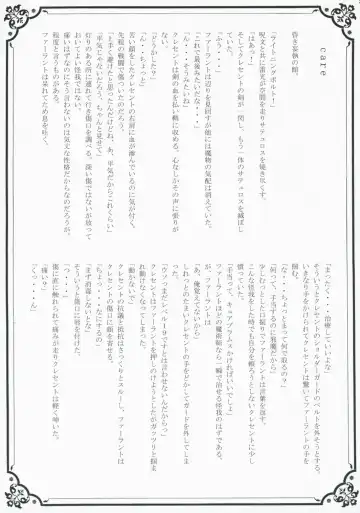 care
昏き妄執の闇。
「ライトニングボルト！」
呪文と共に雷光が空間を切り裂きサテュロスを焼き尽くす。
「はあっ！」
そしてクレセントの剣が一閃し、もう一体のサテュロスを滅ぼした。
「ふう・・・」
「これで最後みたいだな・・・」
ファーラントは辺りを見回すが他には魔物の気配は消えていた。
「ん・・・そうみたいね」
クレセントが剣の血を払い鞘に収める、心なしかその声に張りがない。
「どうかしたか？」
「ん・・・ちょっと」
苦い顔をしたクレセントの右肩に血が滲んでいるのに気が付く。
先程の戦闘で傷ついたのだろう。
「上手く避けたと思ったんだけどね、あ、平気だからこれくらい」
「平気じゃないだろう、ちゃんと見せて」
灯りのある所に連れて行き傷口を調べる。深い傷ではないが放っておいてよい怪我ではない。
痛いはずなのにそう言わないのは気丈な性格だからなのだろうが、程度と言うものがある。
ファーラントは呆れてため息を吐く。
「まったく・・・治療していいよな」
そういうとクレセントのショルダーガードのベルトを外そうとする。
いきなり手をかけられてクレセントは驚いてファーラントの手を制した。
「な・・・ちょっとまって何で取るの？」
「何って、手当するのに邪魔だから」
少しむっとしたは振りでファーラントは言葉を返す。
こんな怪我をした時でも自分を頼ろうとしないクレセントに少し憤っていた。
「手当って、キュアプラムスかければいいでしょ」
ファーラントほどの魔術師なら一瞬で治せる怪我のはずである。
が、ファーラントは
「あ、俺覚えてないから」
しれっとのたまいクレセントの手をどかしてガードを外してしまった。
「ヴァっまだレベル１９でＦとは言わせないんだからっ」
クレセントはファーラントを押しのけようとしたがガッツリと掴まれて動けなくなってしまった。
「動かないで」
クレセントの抗議と抵抗はさっくりとスルーし、ファーラントはクレセントの傷口に顔を寄せる。
「ちょ・・・なにするの」
「まず消毒しないとな」
そういうと傷口に唇を付けた。
「っ・・・」
傷に直に触れられて痛みが走りクレセントは軽く呻いた。
「痛い？」
「くっ・・・ん」